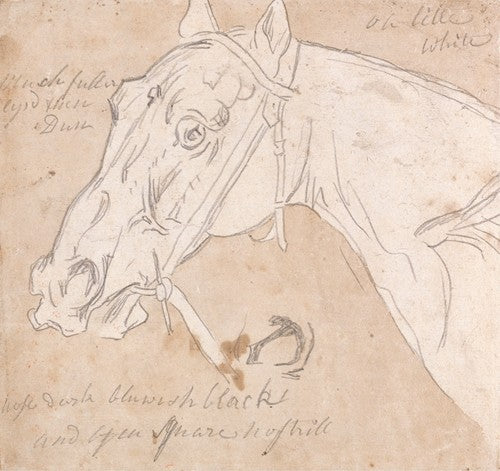 a little
white
much fuller
eyd then
Dun
nose dark bluwish black
and open square nostrill